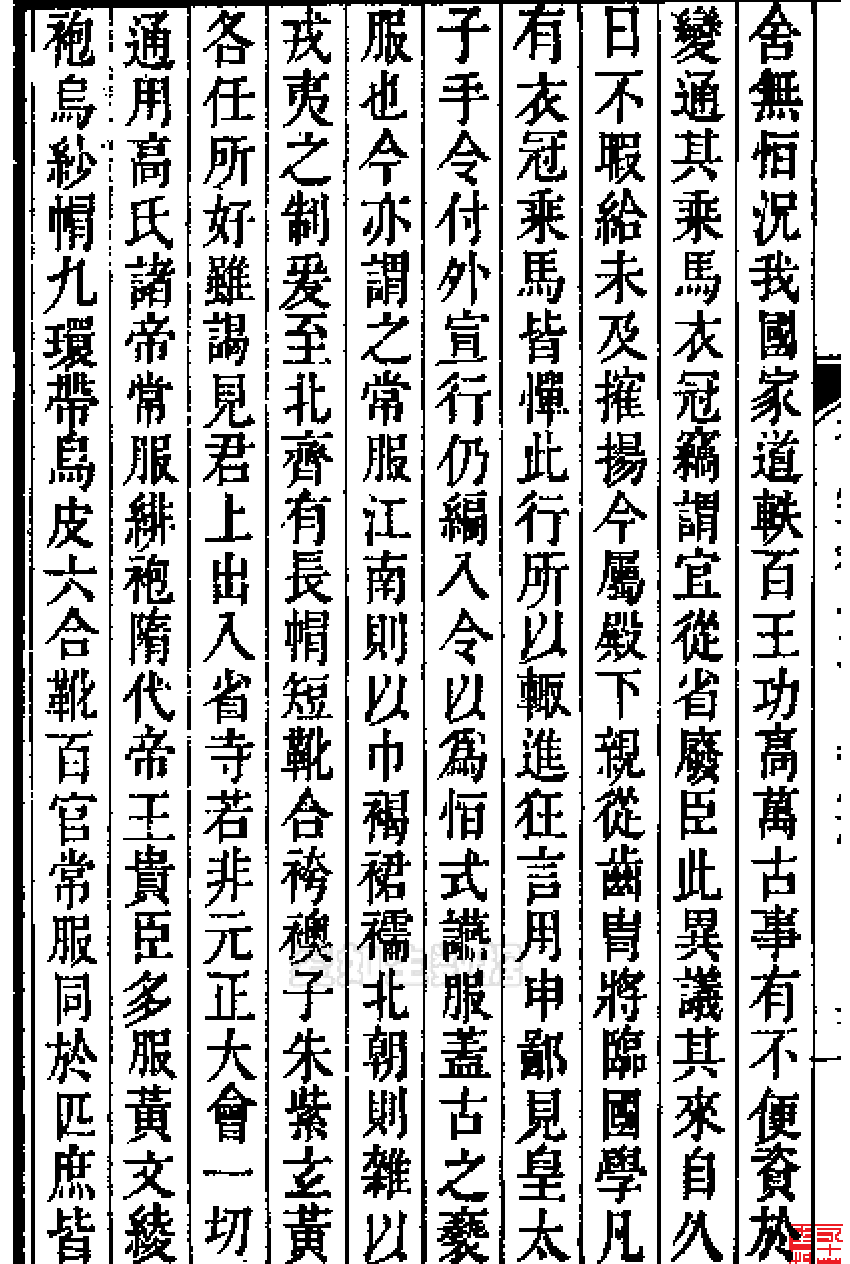 舍無恒況我國家道軼百王功高萬古事有不便資於
變通其乘馬衣冠竊謂宜從省廢臣此異議其來自久
日不暇給未及搉揚今屬殿下親從齒冑將臨國學凡
有衣冠乘馬皆憚此行所以輙進狂言用申鄙見皇太
子手令付外宣行仍編入令以爲恒式讌服蓋古之褻
服也今亦謂之常服江南則以巾褐裙襦北朝則雜以
戎夷之制爰至北齊有長帽短靴合袴襖子朱紫玄黃
各任所好雖謁見君上出入省寺若非元正大會一切
通用高氏諸帝常服緋袍隋代帝王貴臣多服黃文綾
袍烏紗帽九環帶烏皮六合靴百官常服同於匹庶皆